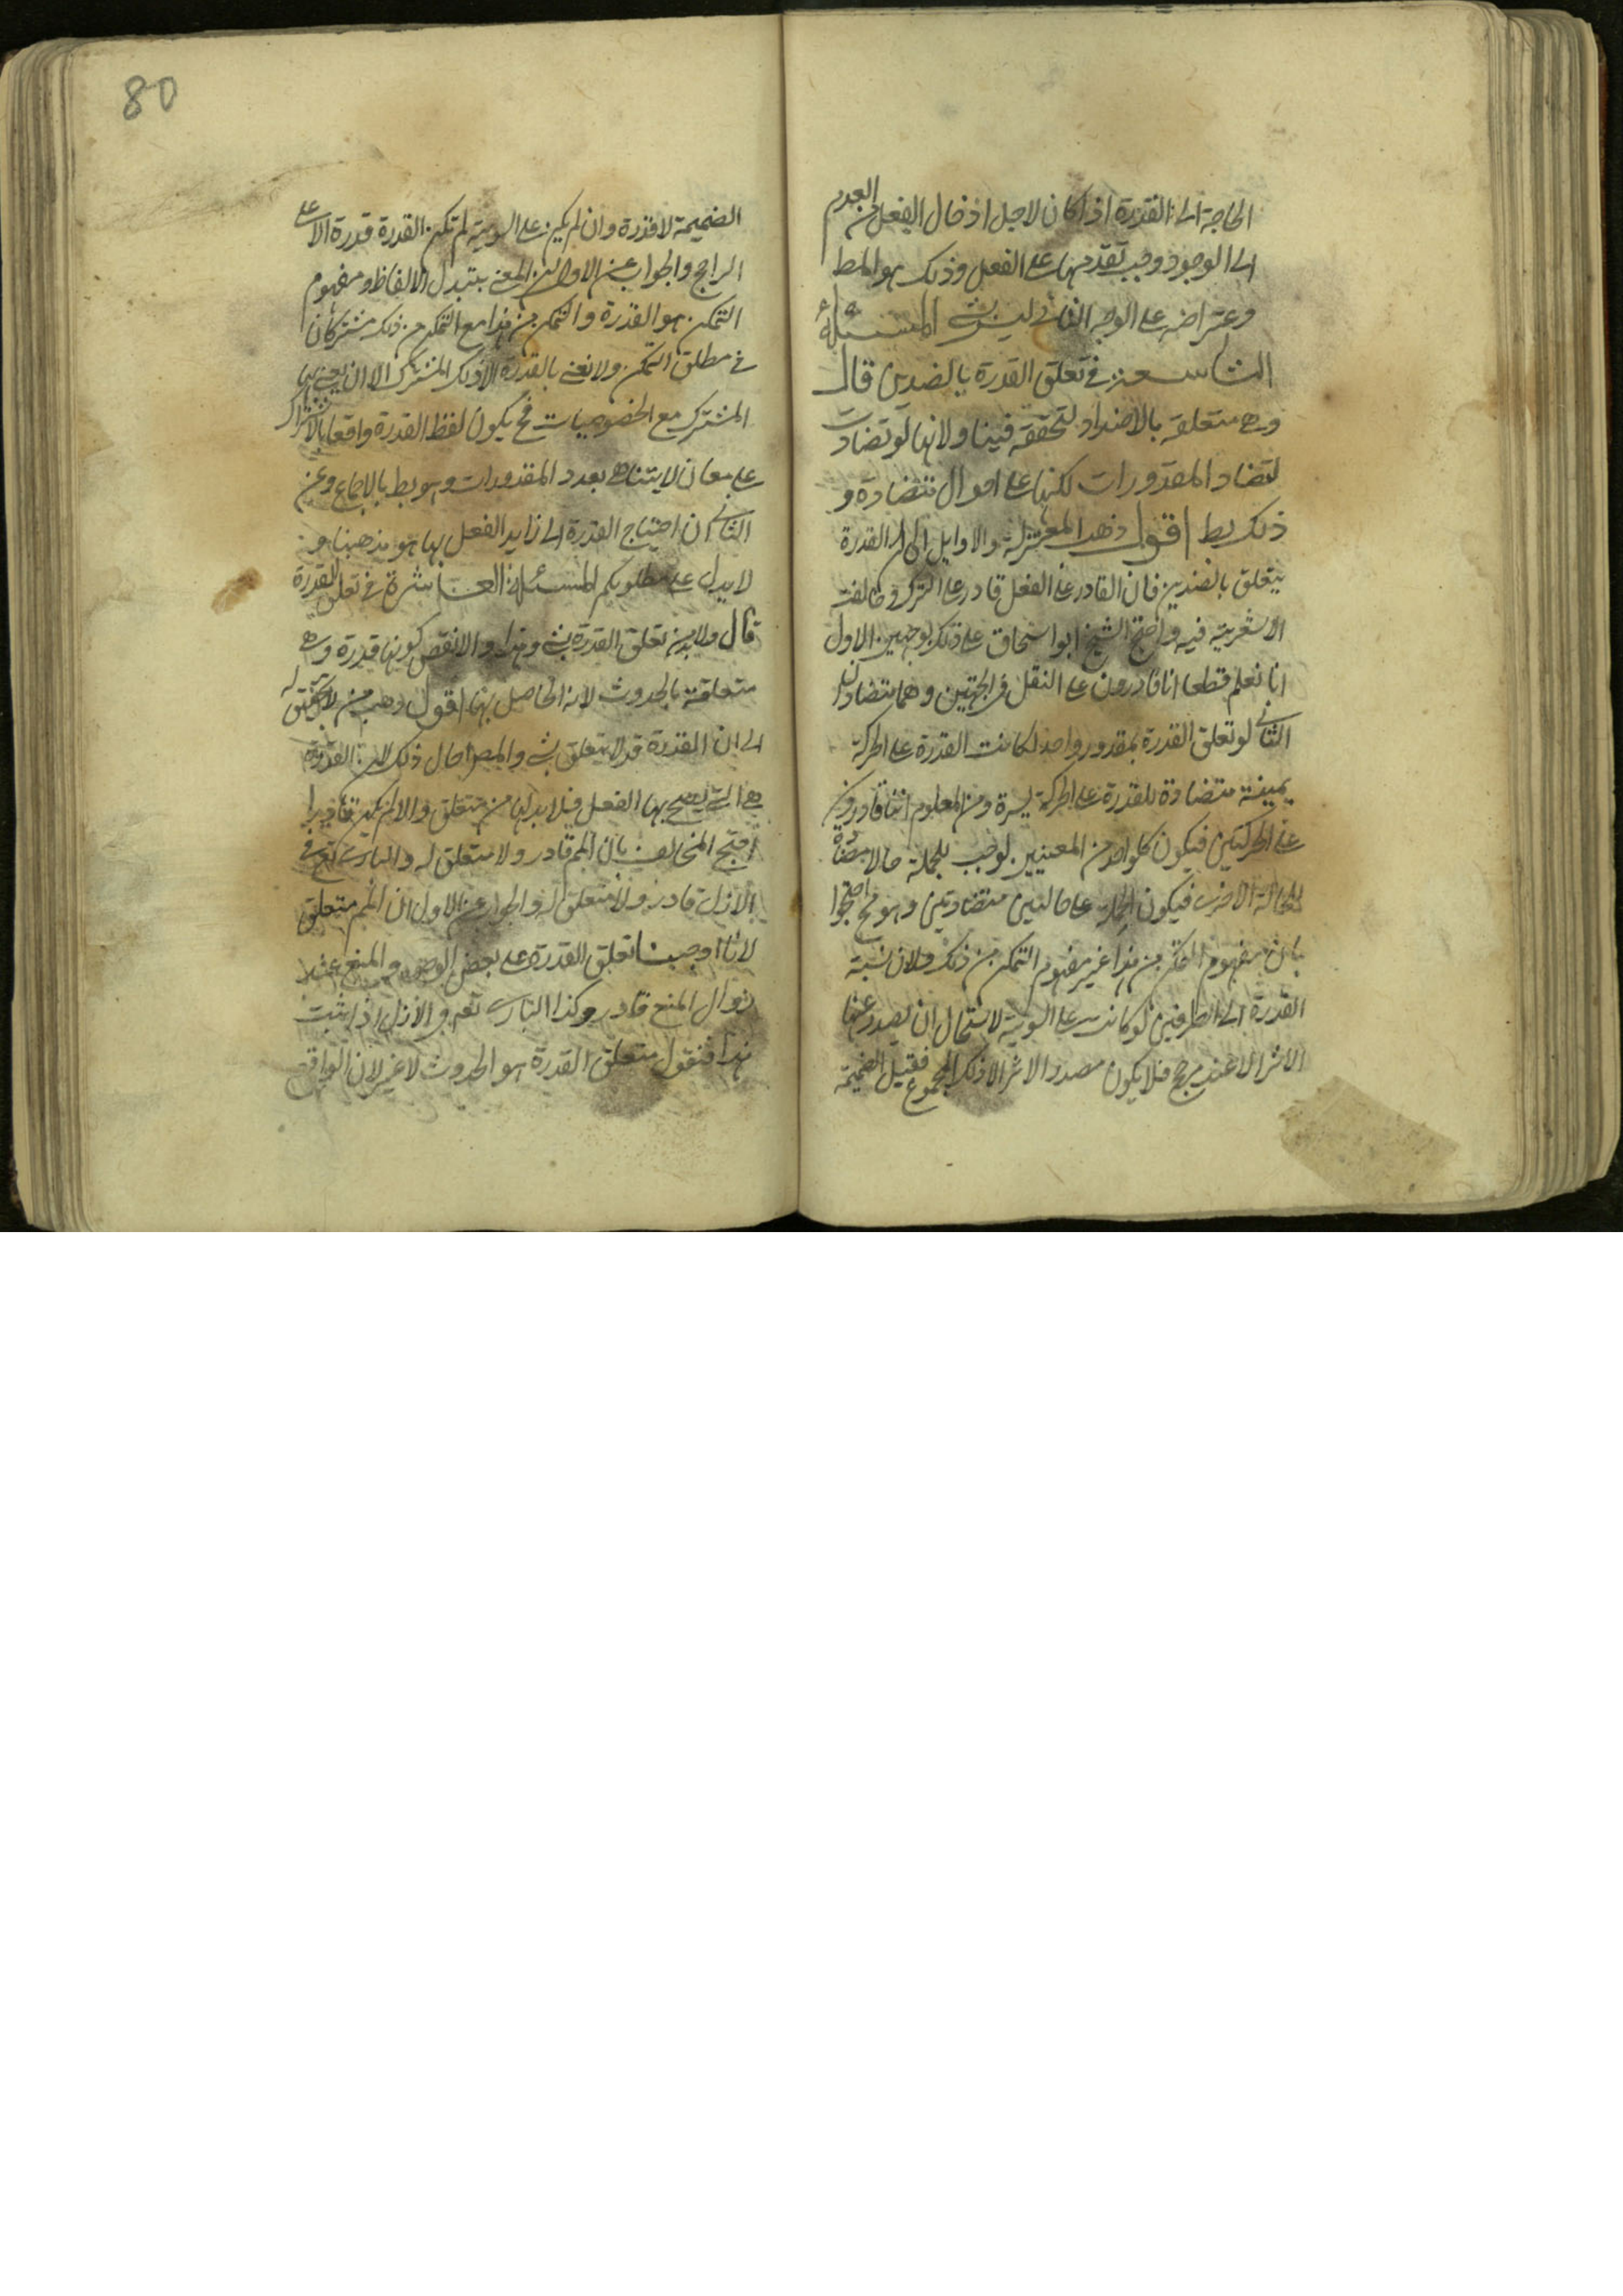 الحاجة الى القدرة اذا كان لاجل ادخال الفعل من العدم
الى الوجود وجب تقدمها على الفعل وذلك هو المط
وعتراضه على الوجه الثانى ليس بشىء المسئلة
التاسعة فى تعلق القدرة بالضدين قال
وهى متعلقة بالاضداد لتحققه فينا ولانها لو تضادت
لتضاد المقدورات لكنا على احوال متضادة و
ذلك بط اقول ذهب المعتزلة والاوايل الى ان القدرة
يتعلق بالضدين فان القادر على الفعل قادر على الترك وخالفت
الاشعرية فيه واحتج الشيخ ابو اسحاق على ذلك بوجهين الاول
انا نعلم قطعا انا قادرون على النقل فى الجهتين وهما متضادان
الثانى لو تعلق القدرة بمقدور واحد لكانت القدرة على الحركة
يمينة متضادة للقدرة على الحركة يسرة ومن المعلوم اننا قادرون
على الحركتين فيكون كل واحد من المعنيين يوجب للجملة حالا مضادة
للحالة الاخرى فيكون الجملة على حالتين متضادتين وهو مح احتجوا
بان مفهوم التمكن من هذا غير مفهوم التمكن من ذلك ولان نسبة
القدرة الى الطرفين لو كانت على السوية لاستحال ان يصدر عنها
الاثر الا عند مرجح فلا يكون مصدر الاثر الا ذلك المجموع فقبل الضميمة
80
الضميمة لا قدرة وان لم يكن على السوية لم تكن القدرة قدرة الا على
الراجح والجواب عن الاول ان المعنى بتبدل الالفاظ ومفهوم
التمكن هو القدرة والتمكن من هذا مع التمكن من ذلك مشتركان
فى مطلق التمكن ولا نعنى بالقدرة الا ذلك المشترك الا ان يعنى بها
المشترك مع الخصوصيات فح يكون لفظ القدرة واقعا بالاشتراك
على معان لا يتناهى بعدد المقدورات وهو بط بالاجماع وعن
الثانى ان احتياج القدرة الى زايد الفعل بها هو مذهبنا و
لا يدل على مطلوبكم المسئلة العاشرة فى تعلق القدرة
قال ولا بد من تعلق القدرة بشىء والا نقض كونها قدرة وهى
متعلقة بالحدوث لانه الحاصل بها اقول ذهب من لا تحقيق له
الى ان القدرة قد لا يتعلق بشىء والمصر احال ذلك لان القدرة
هى التى يصح بها الفعل فلا بد لها من متعلق والا لم يكن قادرا
احتج المخالف بان المم قادر ولا متعلق له والبارى تع فى
الازل قادر ولا متعلق له والجواب عن الاول ان المم متعلق
لانا اوجبنا تعلق القدرة على بعض الوجوه والمنع عند
زوال المنع قادر وكذا البارى تع فى الازل اذا ثبت
هذا فنقول متعلق القدرة هو الحدوث لا غير لان الواقع